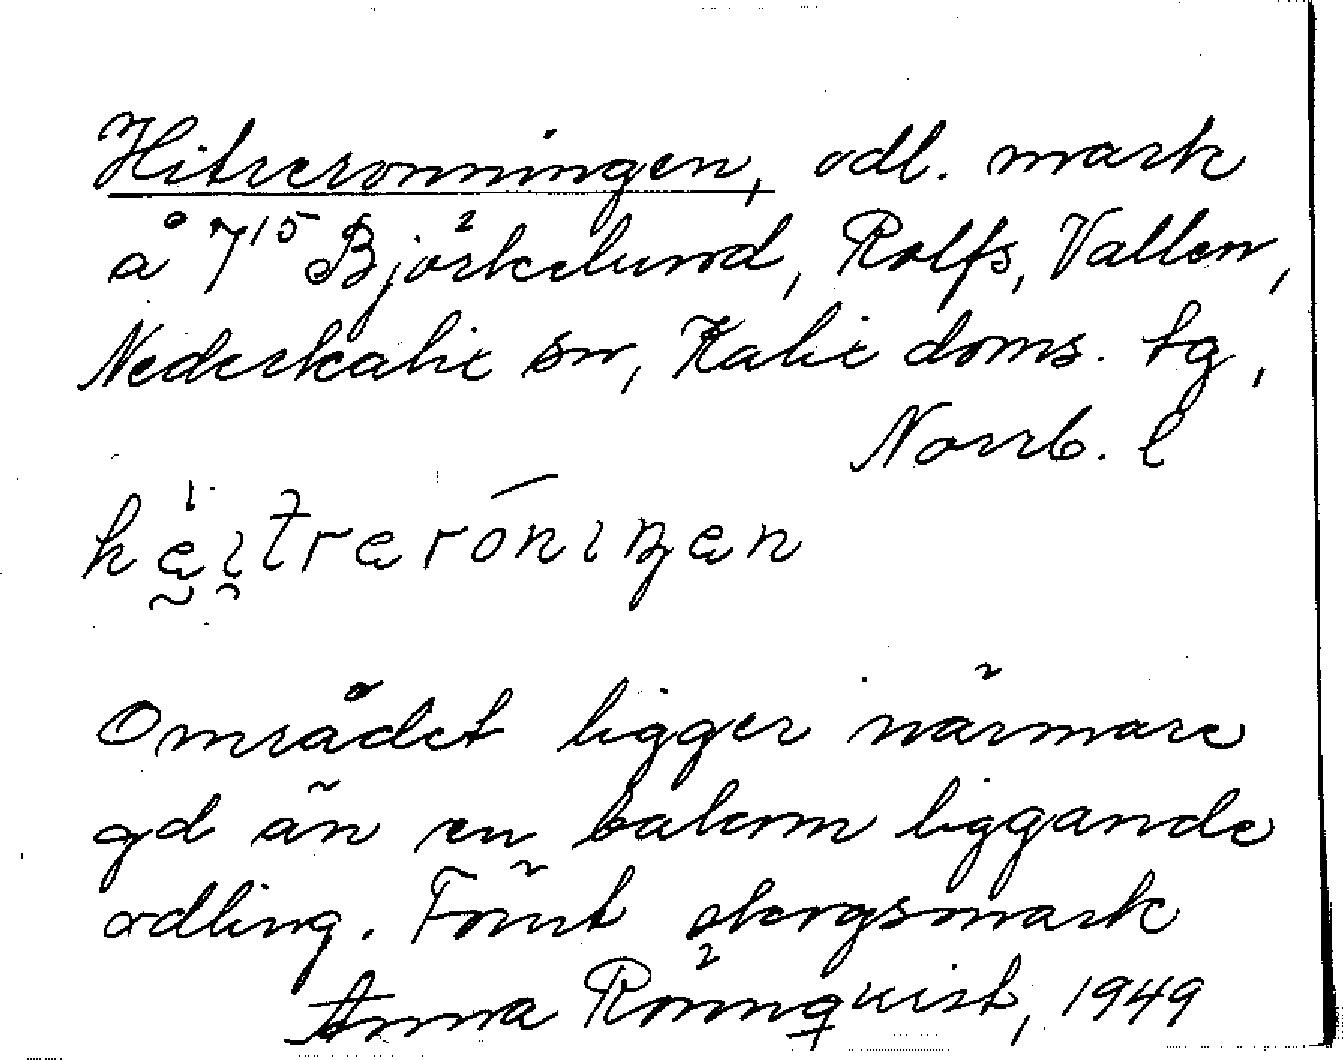 Hitreronningen, odl. mark
å 7¹⁵ Björkelund, Rolfs, Vallen,
Nederkalix sn, Kalix doms. tg,
Norrb. l
Området ligger närmare
gd än en bakom liggande
odling. Förut skogsmark
Anna Rönnquist, 1949